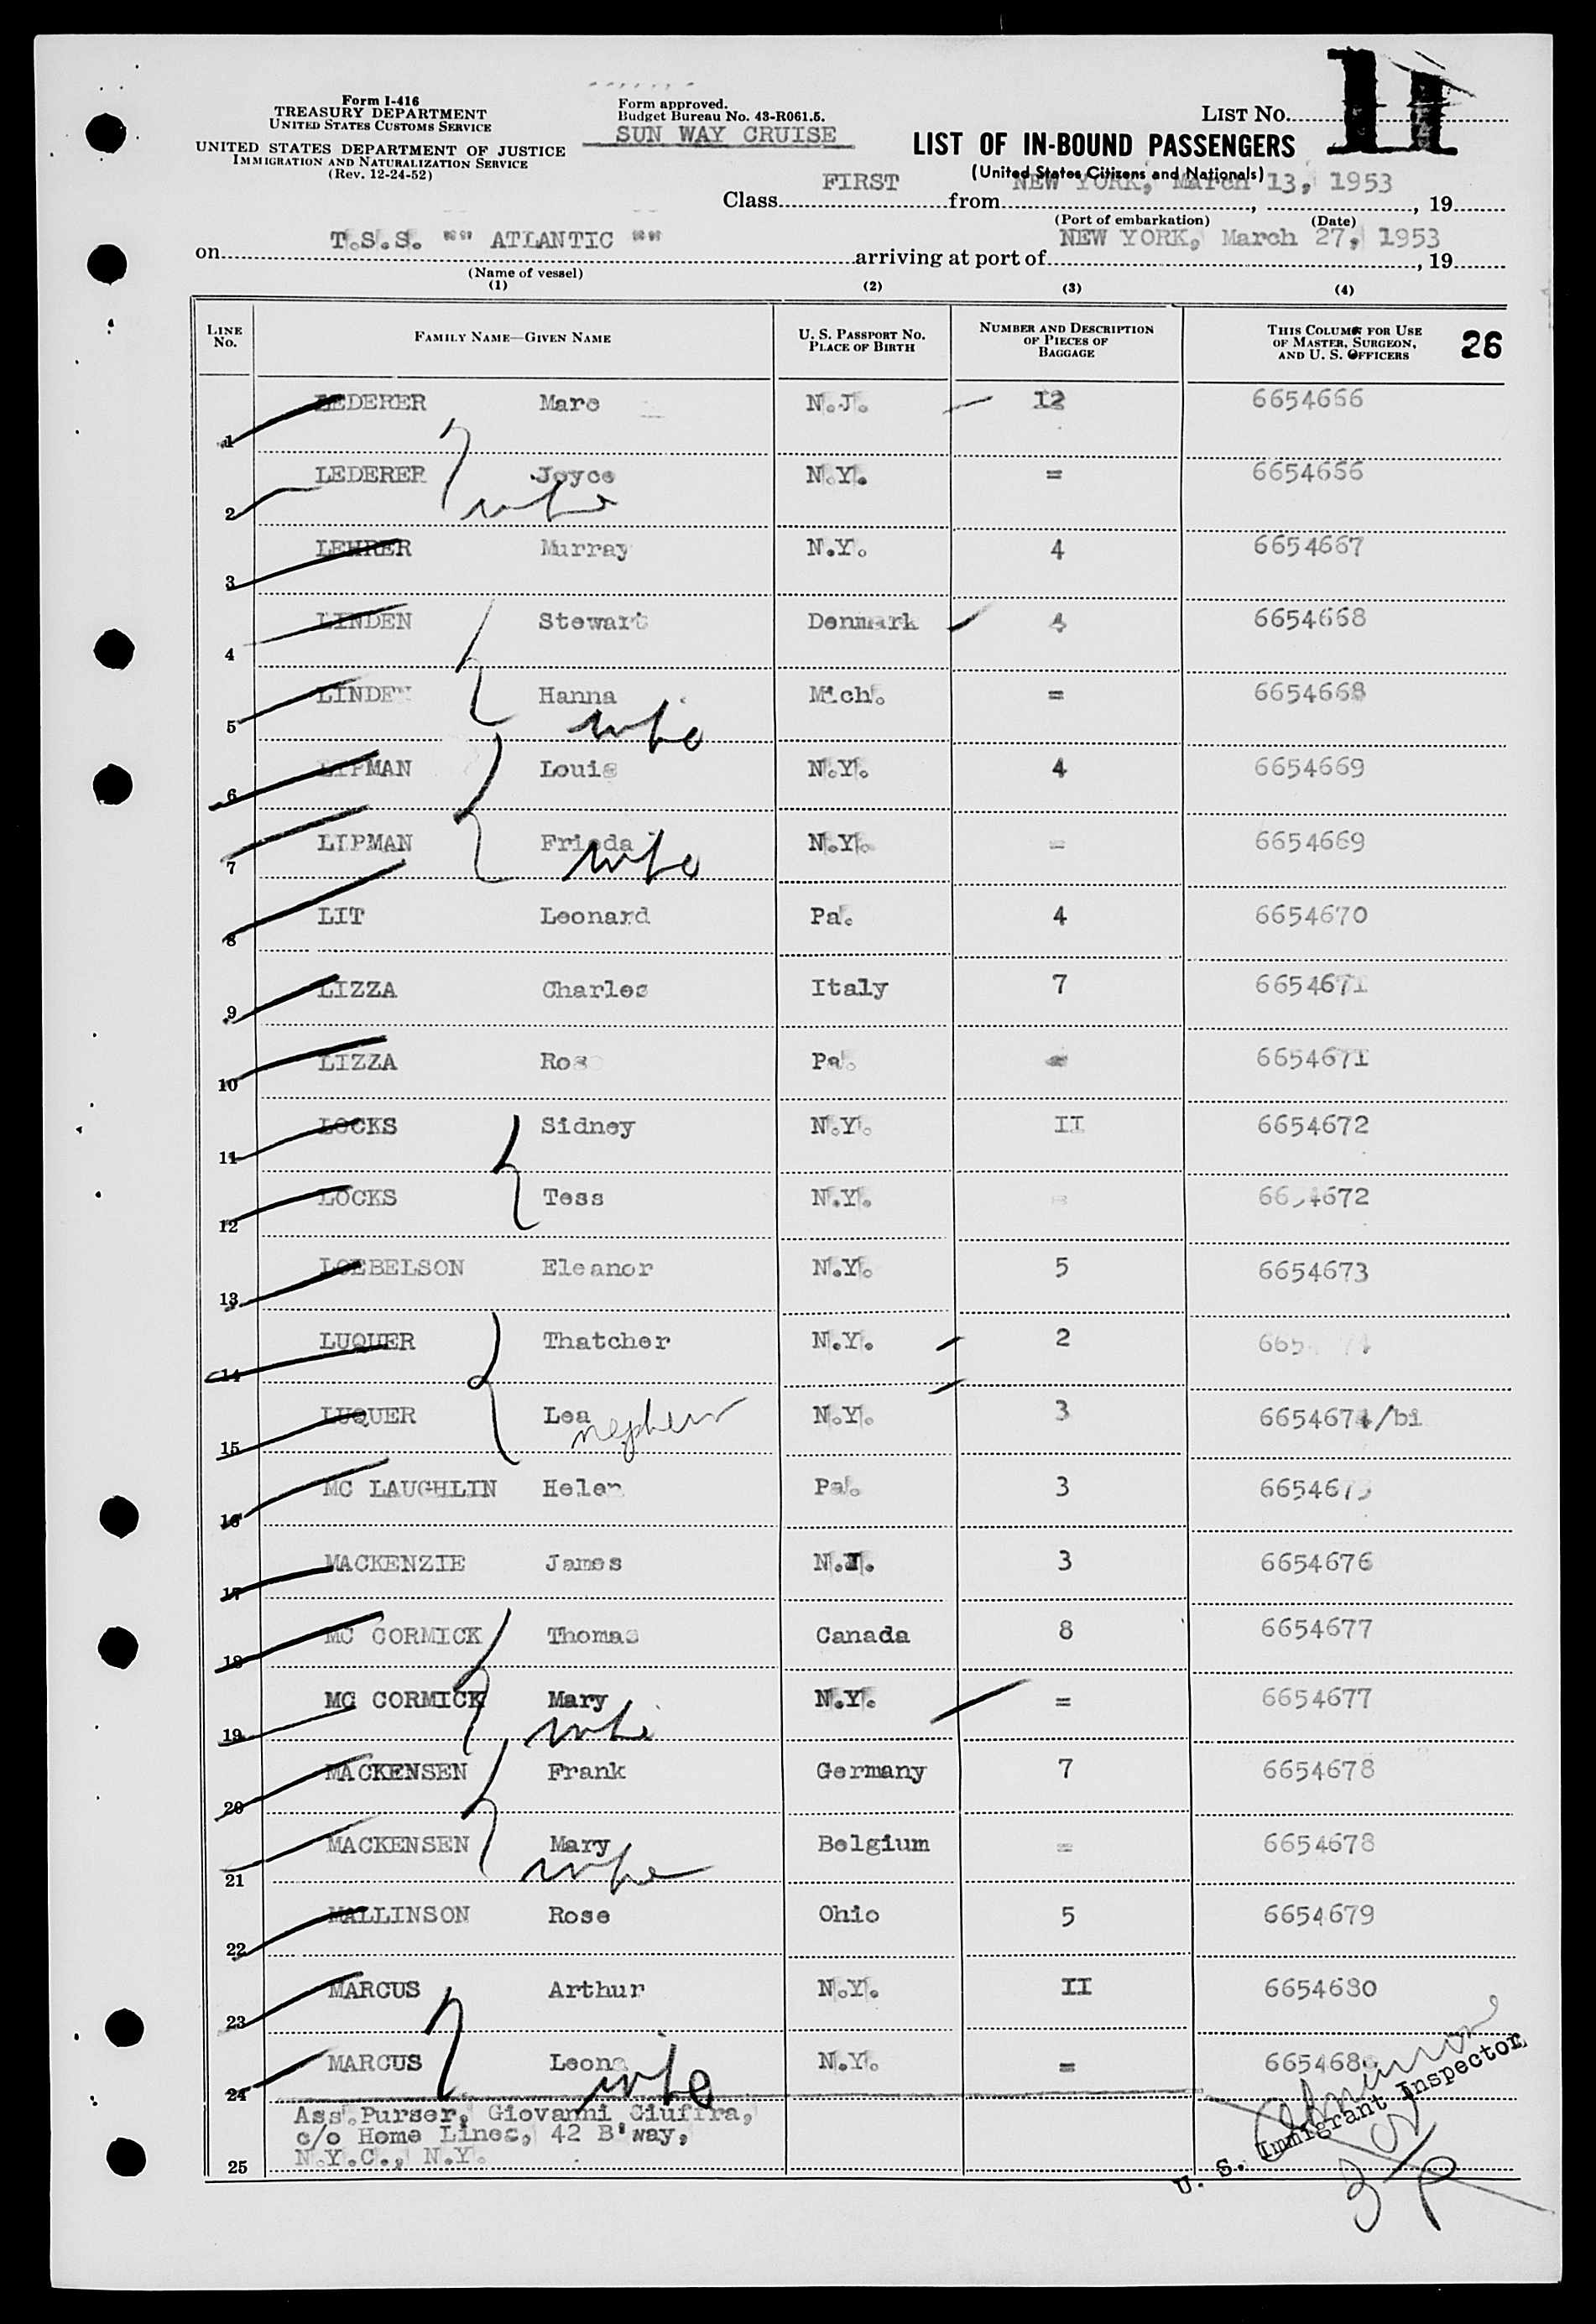 Form I-416
TREASURY DEPARTMENT
UNITED STATES CUSTOMS SERVICE
UNITED STATES DEPARTMENT OF JUSTICE
IMMIGRATION AND NATURALIZATION SERVICE
(Rev. 12-24-52)
Form approved.
Budget Bureau No. 43-R061.5.
SUN WAY CRUISE
LIST No. 11
LIST OF IN-BOUND PASSENGERS
(United States Citizens and Nationals)
Class FIRST from NEW YORK, March 13, 1953, 19
(Port of embarkation) (Date)
on T.S.S. "" ATLANTIC "" arriving at port of NEW YORK, March 27, 1953, 19
(Name of vessel)
(1) (2) (3) (4)
LINE No. FAMILY NAME—GIVEN NAME U. S. PASSPORT No. PLACE OF BIRTH NUMBER AND DESCRIPTION OF PIECES OF BAGGAGE THIS COLUMN FOR USE OF MASTER, SURGEON, AND U. S. OFFICERS 26
1 LEDERER Marc N.J. 12 6654666
2 LEDERER Joyce wife N.Y. = 6654666
3 LEHRER Murray N.Y. 4 6654667
4 LINDEN Stewart Denmark 4 6654668
5 LINDEN Hanna wife Mich. = 6654668
6 LIPMAN Louis N.Y. 4 6654669
7 LIPMAN Frieda wife N.Y. = 6654669
8 LIT Leonard Pa. 4 6654670
9 LIZZA Charles Italy 7 6654671
10 LIZZA Ros Pa. 6654671
11 LOCKS Sidney N.Y. II 6654672
12 LOCKS Tess N.Y. = 6654672
13 LOEBELSON Eleanor N.Y. 5 6654673
14 LUQUER Thatcher N.Y. 2
15 LUQUER Lea nephew N.Y. 3 6654674/bi
16 MC LAUGHLIN Helen Pa. 3 6654675
17 MACKENZIE James 3 6654676
18 MC CORMICK Thomas Canada 8 6654677
19 MC CORMICK Mary wife N.Y. = 6654677
20 MACKENSEN Frank Germany 7 6654678
21 MACKENSEN Mary wife Belgium = 6654678
22 MALLINSON Rose Ohio 5 6654679
23 MARCUS Arthur N.Y. II 6654680
24 MARCUS Leona wife N.Y. = 6654680
Ass.Purser, Giovanni Giuffra,
c/o Home Lines, 42 B'way,
25 N.Y.C., N.Y.
U. S. Immigrant Inspector